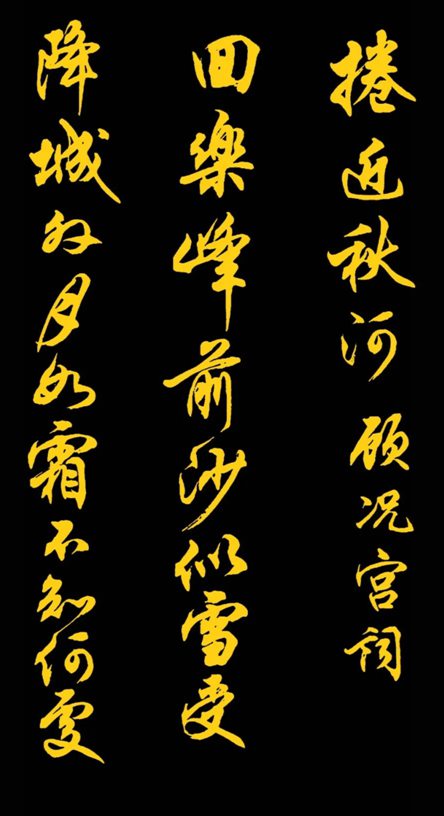 捲近秋河 顾况宫词
回樂峰前沙似雪受
降城外月如霜不知何处